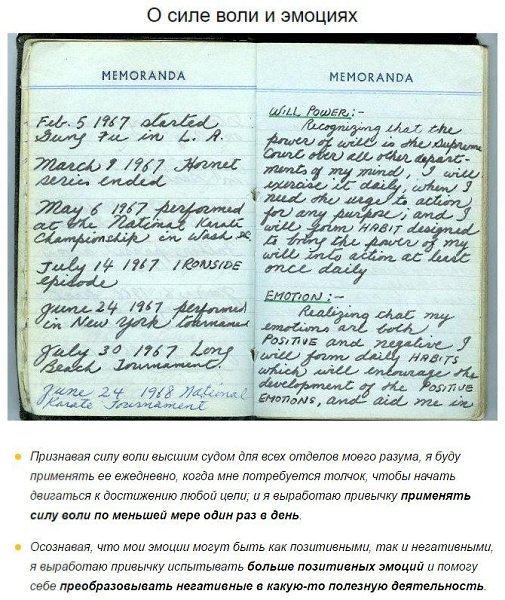 О силе воли и эмоциях
MEMORANDA
Feb. 5 1967 started
Gung Fu in L. A.
March 9 1967 Hornet
series ended
May 6 1967 performed
at the National Karate
Championship in Wash DC
July 14 1967 IRONSIDE
episode
June 24 1967 performed
in New York tournament
July 30 1967 Long
Beach Tournament.
June 24 1968 National
Karate Tournament
MEMORANDA
WILL POWER:-
Recognizing that the
power of will is the supreme
court over all other depart-
ments of my mind, I will
exercise it daily, when I
need the urge to action
for any purpose; and I
will form HABIT designed
to bring the power of my
will into action at least
once daily
EMOTION:-
Realizing that my
emotions are both
POSITIVE and negative I
will form daily HABITS
which will encourage the
development of the POSITIVE
EMOTIONS, and aid me in
Признавая силу воли высшим судом для всех отделов моего разума, я буду
применять ее ежедневно, когда мне потребуется толчок, чтобы начать
двигаться к достижению любой цели; и я выработаю привычку применять
силу воли по меньшей мере один раз в день.
Осознавая, что мои эмоции могут быть как позитивными, так и негативными,
я выработаю привычку испытывать больше позитивных эмоций и помогу
себе преобразовывать негативные в какую-то полезную деятельность.